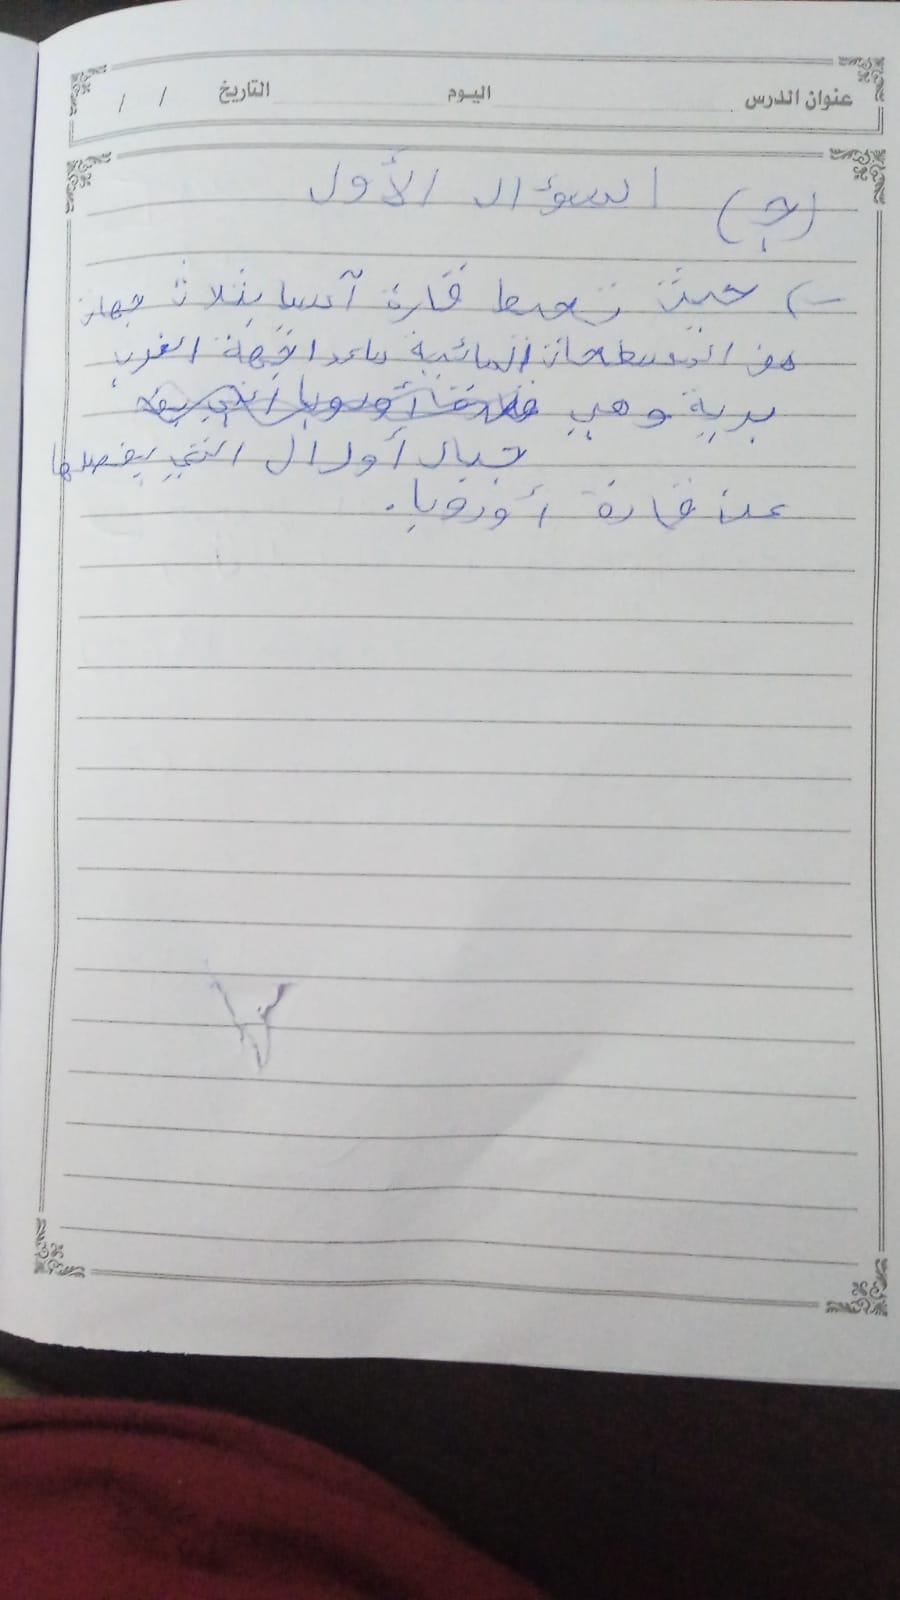 عنوان الدرس اليوم التاريخ / /
(ج) السؤال الأول
حيث تحيط قارة آسيا بثلاث جهات
من المسطحات المائية ماعدا جهة الغرب
برية وهي
جبال أورال التي يفصلها
عن قارة أوروبا.